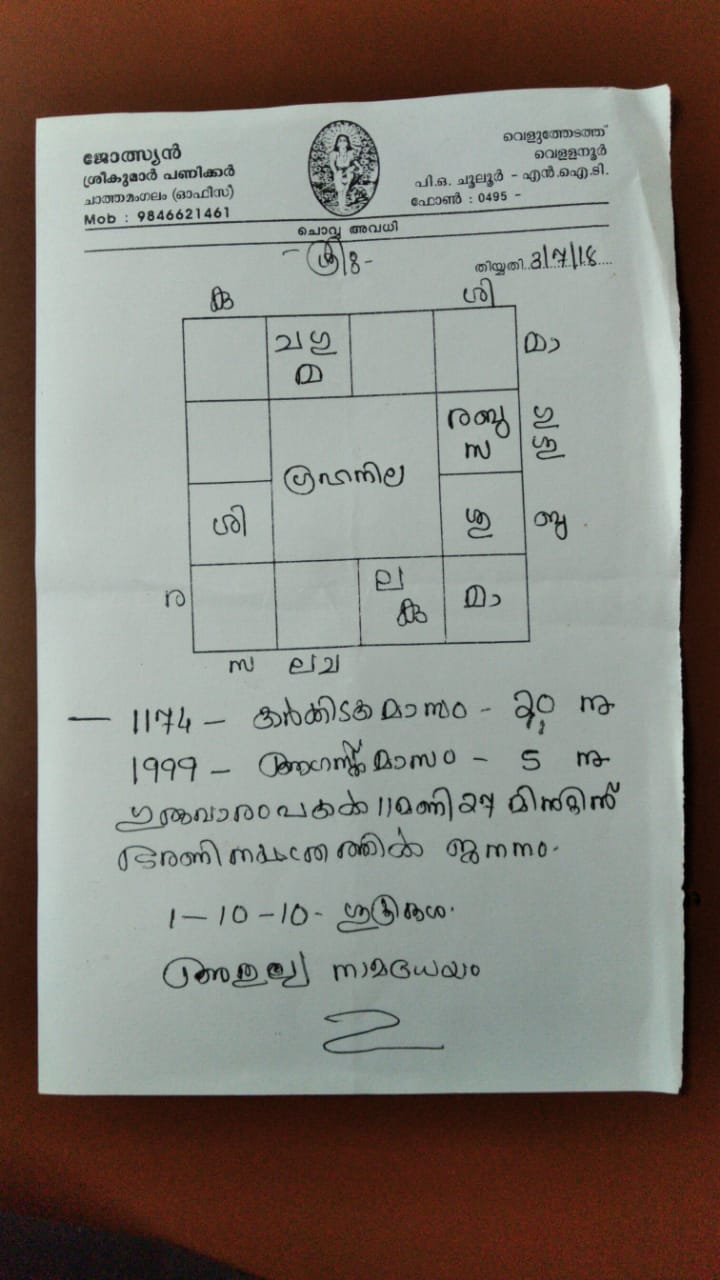 ജോത്സ്യൻ
ശ്രീകുമാർ പണിക്കർ
ചാത്തമംഗലം (ഓഫീസ്)
Mob : 9846621461
വെളുത്തേടത്ത്
വെള്ളനൂർ
പി.ഒ. ചൂലൂർ - എൻ.ഐ.ടി.
ഫോൺ : 0495 -
ചൊവ്വ അവധി
തിയ്യതി 3/7/18
കു ശി
ചഗു മാ
മ
രബു ഗു
സ ശു
ഗ്രഹനില
ശി ശു ബു
ര ല മാ
കു
സ ലച
1174 - കർക്കിടകമാസം - 20 നു
1999 - ആഗസ്റ്റ് മാസം - 5 നു
ഗുരുവാരം പകൽ 11മണി 27 മിനിട്ടിന്
ഭരണി നക്ഷത്രത്തിൽ ജനനം.
1-10-10- ശുക്രദശ.
നാമധേയം